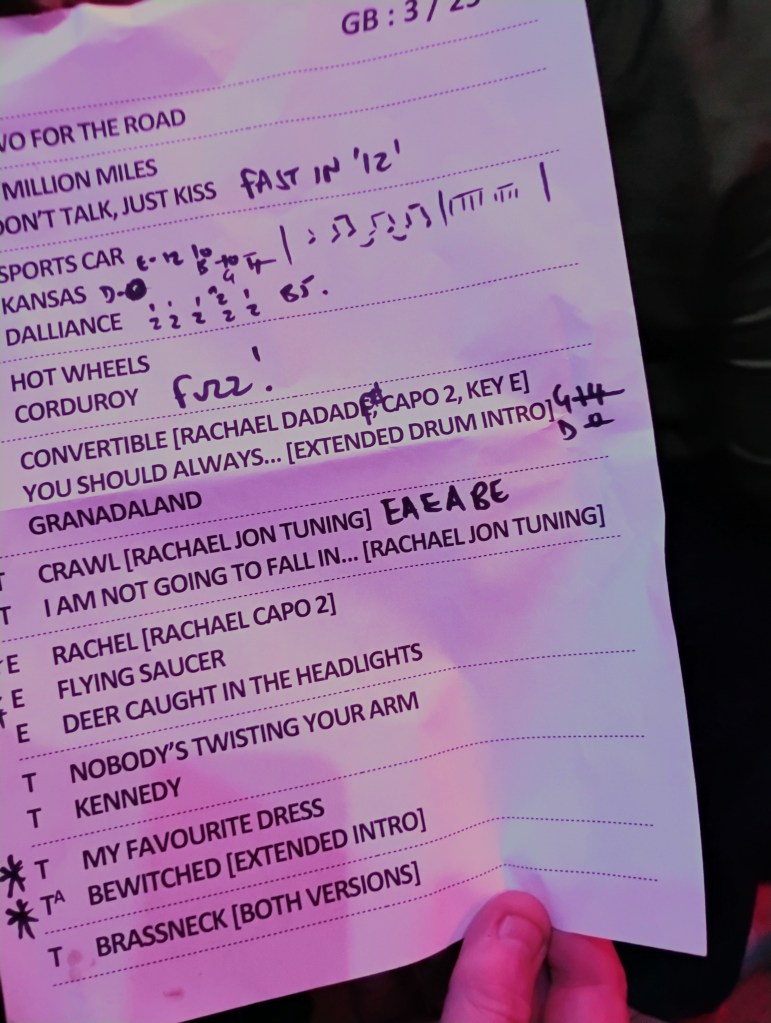 GB : 3 / 23
WO FOR THE ROAD
MILLION MILES
DON'T TALK, JUST KISS FAST IN '12'
SPORTS CAR E-12 10
KANSAS D-0
DALLIANCE 2 2 2 2 2 B5.
HOT WHEELS
CORDUROY FUZZ!
CONVERTIBLE [RACHAEL DADAD, CAPO 2, KEY E]
YOU SHOULD ALWAYS... [EXTENDED DRUM INTRO]
GRANADALAND
T CRAWL [RACHAEL JON TUNING] EAEABE
T I AM NOT GOING TO FALL IN... [RACHAEL JON TUNING]
E RACHEL [RACHAEL CAPO 2]
E FLYING SAUCER
E DEER CAUGHT IN THE HEADLIGHTS
T NOBODY'S TWISTING YOUR ARM
T KENNEDY
* T MY FAVOURITE DRESS
* TA BEWITCHED [EXTENDED INTRO]
T BRASSNECK [BOTH VERSIONS]